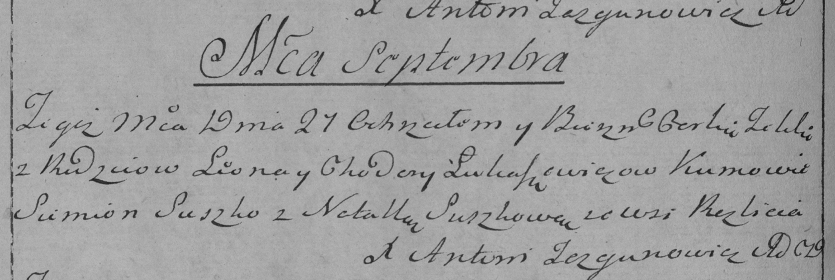 X Antoni Jazgunowicz AD
Mca Septembra
Tegoż Mca Dnia 27 Ochrzciłem y Córkę Teklię
z Rodziców Leona y Chodory Łukaszewiczow Kumowie
Sumion Suszko z Natallą Suszkową ze wsi
X Antoni Jazgunowicz AD